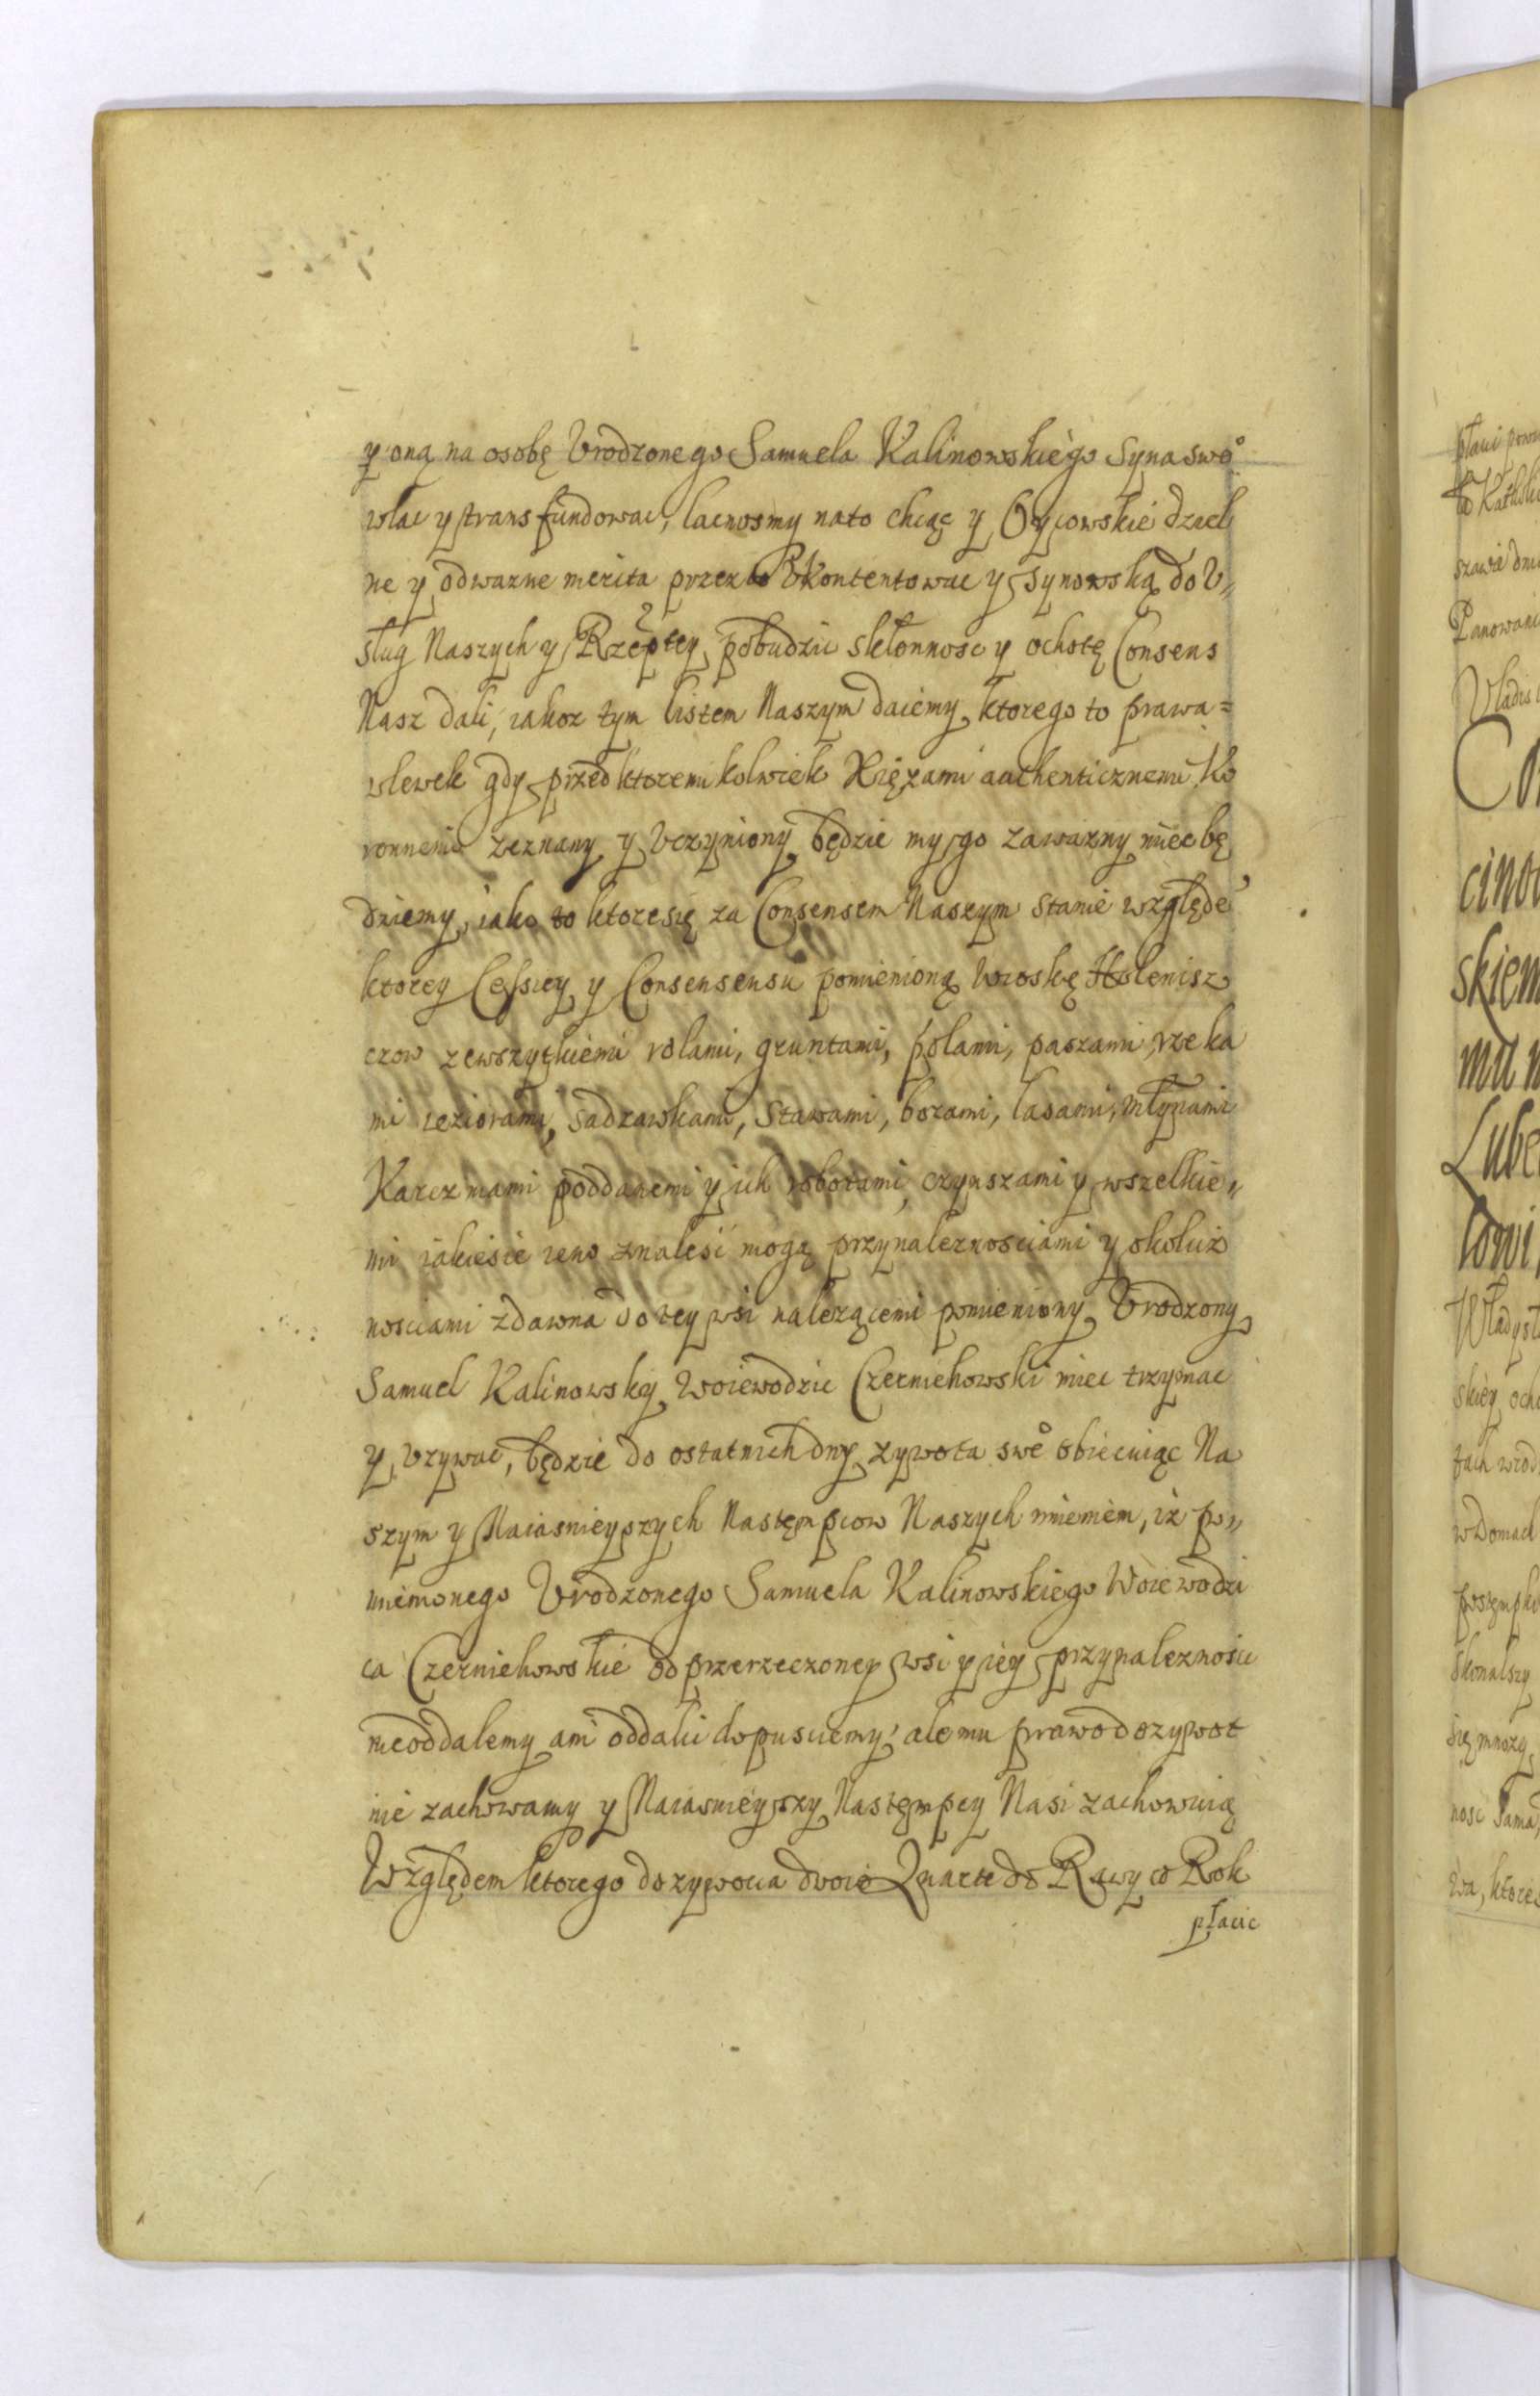 y oną na osobę Vrodzonego Samuela Kalinowskiego Syna sweo
wlac y transfundowac, lacnosmy na to chcąc y Oycowskie dziel
ne y odwazne merita przez to Vkontentowac y synowską do V„
sług Naszych y Rzeptey pobudzic skłonnosc y ochotę Consens
Nasz dali, iakoz tym listem Naszym daiemy, ktorego to prawa=
wlewek gdy przed ktoremikolwiek Xięgami authenticznemi Ko
ronnemi zeznany y Vczyniony będzie my go za wazny miec bę
dziemy, iako to ktore się za Consensem Naszym stanie względe
ktorey Cessiey y Consensensu pomienioną Wioskę Holenisz
czow ze wszytkiemi rolami, gruntami, polami, paszami, rzeka
mi ieziorami, sadzawkami, Stawami, borami, lasami, młynami
Karczmami poddanemi y ich robotami, czynszami y wszelkie„
mi iakiesie ieno znalesć mogą przynaleznosciami y okolicz
nosciami zdawna do tey wsi nalezącemi pomieniony Vrodzony
Samuel Kalinowsky Woiewodzic Czerniehowski miec trzymac
y Vzywac, będzie do ostatnich dny zywota sweo obiecuiąc Na
szym y Naiasnieyszych Następcow Naszych imieniem, iż po„
mienionego Vrodzonego Samuela Kalinowskiego Woiewodzi
ca Czerniehowskie od przerzeczoney wsi y iey przynaleznosci
nieoddalemy ani oddalić dopusciemy, ale mu prawo dozywot
nie zachowamy y Naiasnieyszy Następcy Nasi zachowaią
Względem ktorego dozywocia dwoie Quarte do Rawy co Rok
płacic